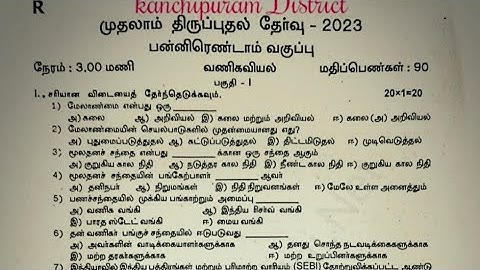 kanchipuram District
R
முதலாம் திருப்புதல் தேர்வு - 2023
பன்னிரெண்டாம் வகுப்பு
நேரம் : 3.00 மணி வணிகவியல் மதிப்பெண்கள் : 90
பகுதி - I
I. சரியான விடையைத் தேர்ந்தெடுக்கவும். 20×1=20
1) மேலாண்மை என்பது ஒரு
அ) கலை ஆ) அறிவியல் இ) கலை மற்றும் அறிவியல் ஈ) கலை (அ) அறிவியல்
2) மேலாண்மையின் செயல்பாடுகளில் முதன்மையானது எது?
அ) புதுமைப்படுத்துதல் ஆ) கட்டுப்படுத்துதல் இ) திட்டமிடுதல் ஈ) முடிவெடுத்தல்
3) மூலதனச் சந்தை என்பது ________ க்கான ஒரு சந்தை ஆகும்
அ) குறுகிய கால நிதி ஆ) நடுத்தர கால நிதி இ) நீண்ட கால நிதி ஈ) குறுகிய கால நிதி
4) மூலதனச் சந்தையின் பங்கேற்பாளர் ________ ஆவர்
அ) தனிநபர் ஆ) நிறுமங்கள் இ) நிதி நிறுவனங்கள் ஈ) மேலே உள்ள அனைத்தும்
5) பணச்சந்தையில் முக்கிய பங்காற்றும் அமைப்பு ________
அ) வணிக வங்கி ஆ) இந்திய ரிசர்வ் வங்கி
இ) பாரத ஸ்டேட் வங்கி ஈ) மைய வங்கி
6) தன் வணிகர் பங்குச் சந்தையில் ஈடுபடுவது ________
அ) அவர்களின் வாடிக்கையாளர்களுக்காக ஆ) தனது சொந்த நடவடிக்கைகளுக்காக
இ) மற்ற தரகர்களுக்காக ஈ) மற்ற உறுப்பினர்களுக்காக
7) இந்தியாவில் இந்திய பத்திரங்கள் மற்றும் பரிமாற்ற வாரியம் (SEBI) தோற்றுவிக்கப்பட்ட ஆண்டு